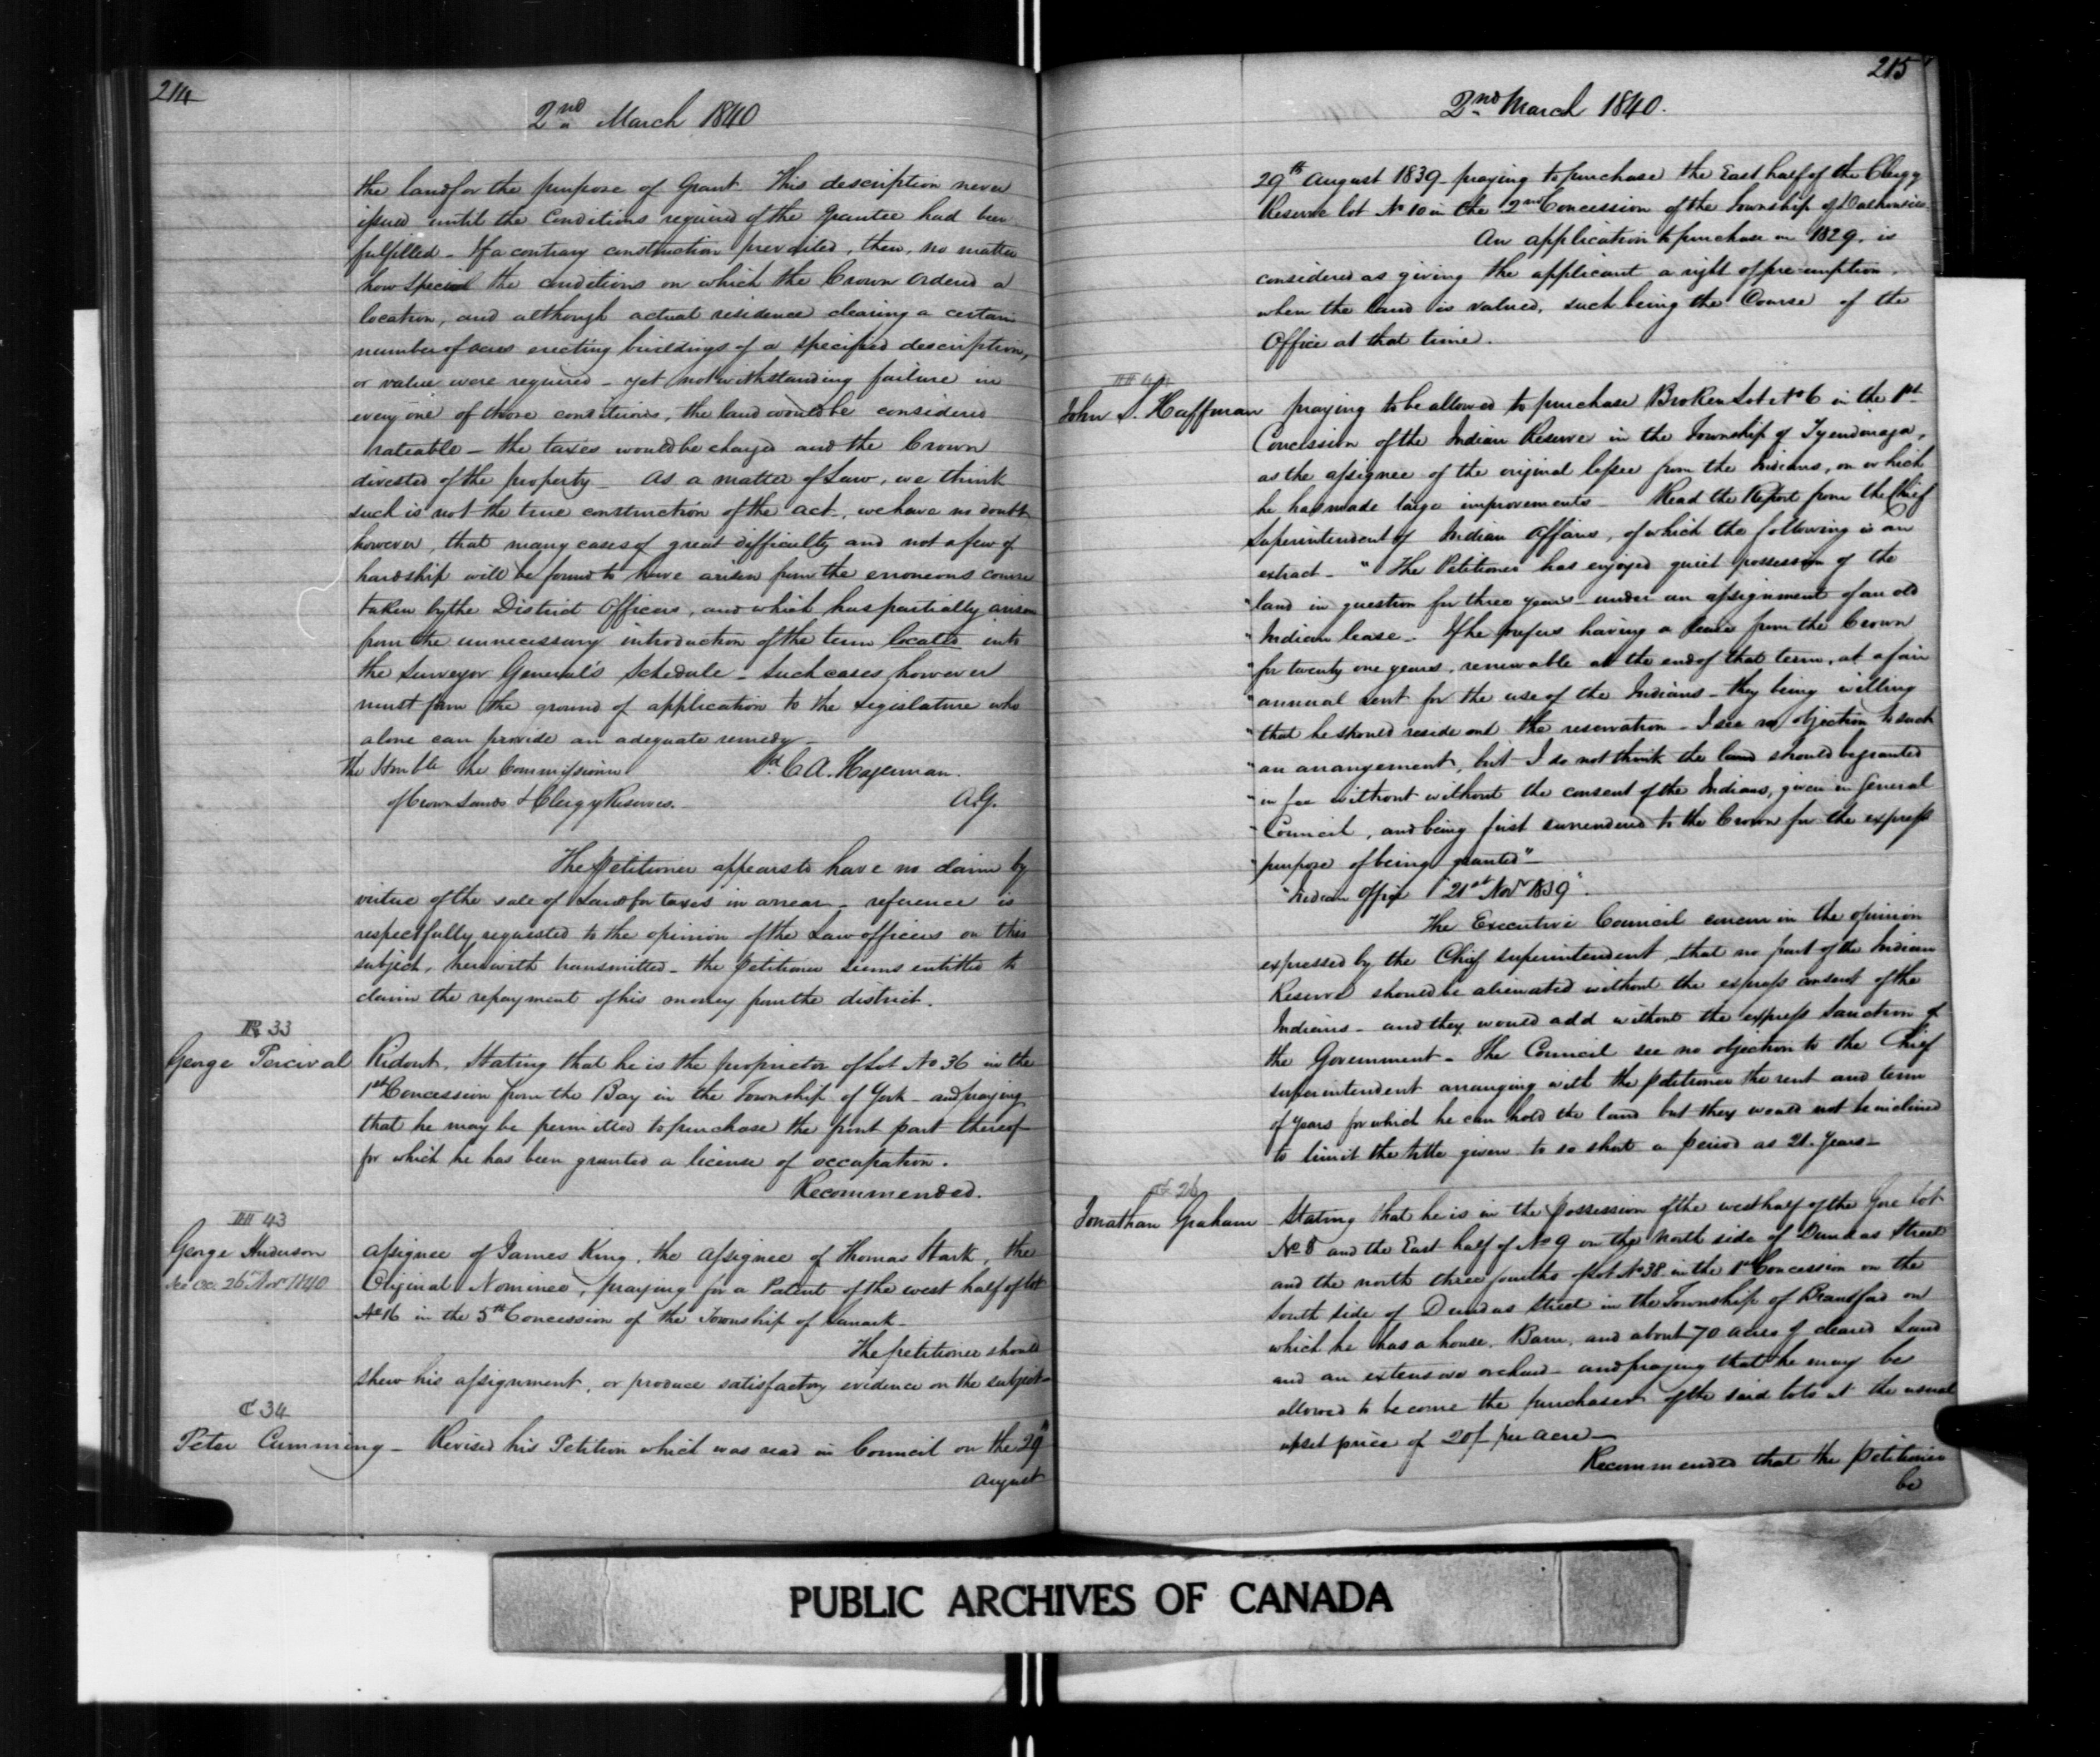 214
2nd March 1840
the land for the purpose of Grant. This description never
issued until the Conditions required of the Grantee had been
fulfilled - If a contrary construction prevailed, then, no matter
how special the conditions on which the Crown ordered a
location, and although actual residence clearing a certain
number of acres erecting buildings of a specified description,
or value were required - yet notwithstanding failure in
every one of those conditions, the land would be considered
rateable - the taxes would be charged and the Crown
divested of the property - As a matter of Law, we think
such is not the true construction of the act, we have no doubt
however, that many cases of great difficulty and not a few of
hardship will be found to have arisen from the erroneous course
taken by the District Officers, and which has partially arisen
from the unnecessary introduction of the term located into
the Surveyor General's Schedule - Such cases however
must form the ground of application to the Legislature who
alone can provide an adequate remedy -
The Honble the Commissioner
Sd. C. A. Hagerman.
of Crown Lands & Clergy Reserves.
A.G.
The Petitioner appears to have no claim by
virtue of the sale of Land for taxes in arrear - reference is
respectfully requested to the opinion of the Law officers on this
subject, herewith transmitted - the petitioner seems entitled to
claim the repayment of his money from the district.
R 33
George Percival Ridout, Stating that he is the proprietor of Lot No 36 in the
1st Concession from the Bay in the Township of York - and praying
that he may be permitted to purchase the front part thereof
for which he has been granted a license of occupation.
Recommended.
H 43
George Henderson Assignee of James King, the Assignee of Thomas Stark, the
See O.C. 26 Nov 1840 Original Nominee, praying for a Patent of the west half of lot
No 16 in the 5th Concession of the Township of Lanark -
The petitioner should
shew his assignment, or produce satisfactory evidence on the subject -
C 34
Peter Cumming - Revised his Petition which was read in Council on the 29th
August
215
2nd March 1840.
29th August 1839 praying to purchase the East half of the Clergy
Reserve lot No 10 in the 2nd Concession of the Township of Dalhousie.
An application to purchase in 1829, is
considered as giving the applicant a right of pre-emption.
when the land is valued, such being the Course of the
Office at that time.
H 44
John S. Huffman praying to be allowed to purchase Broken Lot No 6 in the 1st
Concession of the Indian Reserve in the Township of Tyendinaga,
as the assignee of the original lessee from the Indians, on which
he has made large improvements - Read the Report from the Chief
Superintendent of Indian Affairs, of which the following is an
extract - "The Petitioner has enjoyed quiet possession of the
"land in question for three years - under an assignment of an old
"Indian lease - If he prefers having a lease from the Crown
"for twenty one years, renewable at the end of that term, at a fair
"annual rent for the use of the Indians - they being willing
"that he should reside on the reservation - I see no objection to such
"an arrangement, but I do not think the land should be granted
"in fee without without the consent of the Indians, given in General
"Council, and being first surrendered to the Crown for the express
"purpose of being granted" -
"Indian Office "21st Nov 1839".
The Executive Council concur in the opinion
expressed by the Chief Superintendent, that no part of the Indian
Reserve should be alienated without the express consent of the
Indians - and they would add without the express Sanction of
the Government - The Council see no objection to the Chief
superintendent arranging with the petitioner the rent and term
of years for which he can hold the land but they would not be inclined
to limit the title given to so short a period as 21. Years -
G 26
Jonathan Graham - Stating that he is in the possession of the west half of the Gore Lot
No 8 and the East half of No 9 on the North side of Dundas Street
and the north three fourths of Lot No 38 in the 1st Concession on the
South side of Dundas Street in the Township of Brantford on
which he has a house, Barn, and about 70 acres of cleared Land
and an extensive orchard - and praying that he may be
allowed to become the purchaser of the said lots at the usual
upset price of 20/ per acre -
Recommended that the Petitioner
be
PUBLIC ARCHIVES OF CANADA